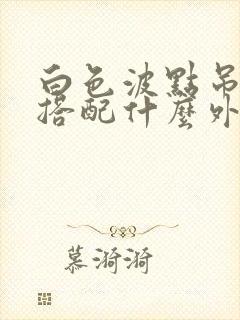 白色波點吊
搭配什麼外
慕漪漪